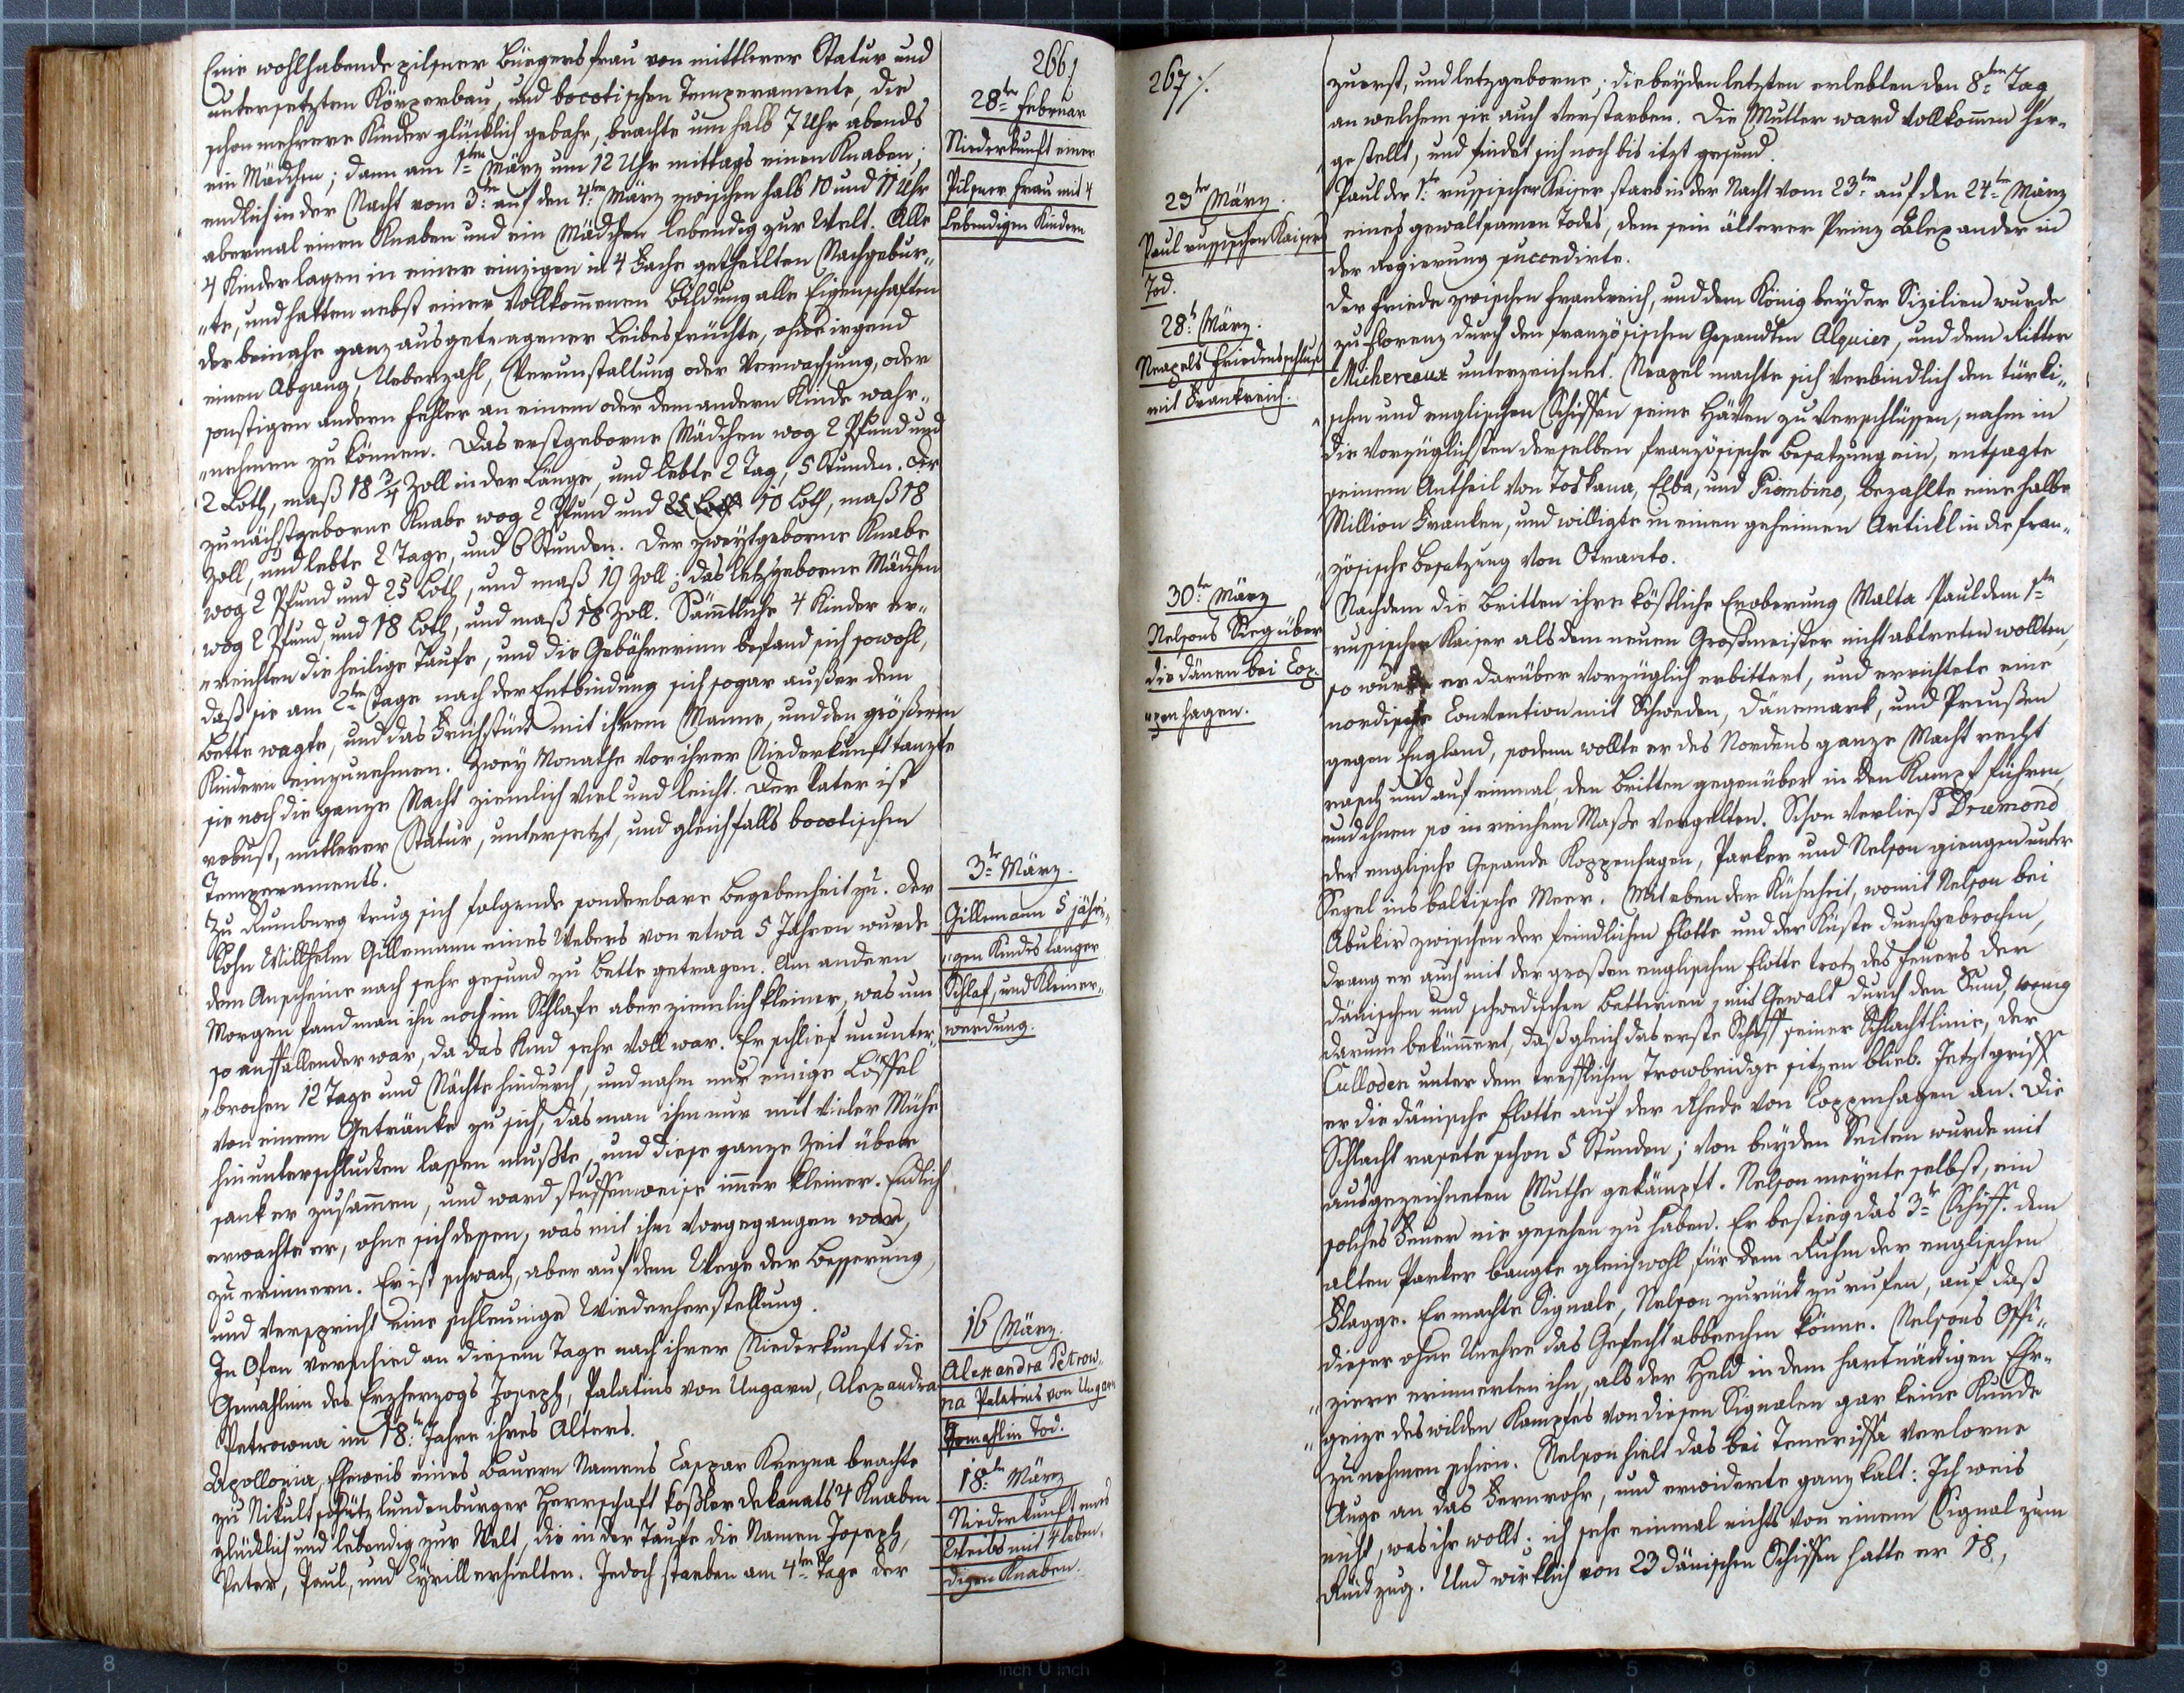 266/
Eine wohlhabende pilsner Bürgersfrau von mittlerer Statur und
untersetzten Körperbau, und bocotischen Temperaments, die
schon mehrere Kinder glücklich gebahr, brachte um halb 7 Uhr abends
ein Mädchen; dann am 1ten März um 12 Uhr mittags einen Knaben;
endlich in der Nacht vom 3ten auf den 4ten März zwischen halb 10 und 11 Uhr
abermal einen Knaben und ein Mädchen lebendig zur Welt. Alle
4 Kinder lagen in einer einzigen in 4 Fache getheilten Nachgebur„
„te, und hatten nebst einer vollkom̄enen Bildung alle Eigenschaften
der beinahe ganz ausgetragener Leibesfrüchte, ohne irgend
einen Abgang, Ueberzahl, Verunstaltung oder Verwachsung, oder
sonstigen andern Fehler an einem oder dem andern Kinde wahr„
„nehmen zu können. Das erstgeborne Mädchen wog 2 Pfund und
2 Loth, maß 18 3/4 Zoll in der Länge, und lebte 2 Tag, 5 Stunden. Der
zunächstgeborne Knabe wog 2 Pfund und 10 Loth, maß 18
Zoll, und lebte 2 Tage, und 6 Stunden. Der zweytgeborne Knabe
wog 2 Pfund und 25 Loth, und maß 19 Zoll; das letztgeborne Mädchen
wog 2 Pfund, und 18 Loth, und maß 18 Zoll. Sämtliche 4 Kinder er„
„reichten die heilige Taufe, und die Gebährerinn befand sich sowohl,
daß sie am 2ten Tage nach der Entbindung sich sogar außer dem
Bette wagte, und das Frühstück mit ihrem Manne, und den größeren
Kindern einzunehmen. Zwey Monathe vor ihrer Niederkunft tanzte
sie noch die ganze Nacht ziemlich viel und leicht. Der Vater ist
robust, mittlerer Statur, untersetzt, und gleichfalls bocotischen
Temperaments.
Zu Rumburg trug sich folgende sonderbare Begebenheit zu. Der
Sohn Willhelm Gillemann eines Webers von etwa 5 Jahren wurde
dem Anscheine nach sehr gesund zu Bette getragen. Am andern
Morgen fand man ihn noch im Schlafe aber ziemlich kleiner, was um
so auffallender war, da das Kind sehr voll war. Er schlief ununter„
„brochen 12 Tage und Nächte hindurch, und nahm nur einige Löffel
von einem Getränke zu sich, das man ihm nur mit vieler Mühe
hinunterschlucken lassen mußte, und diese ganze Zeit über
sank er zusam̄en, und ward stuffenweise im̄er kleiner. Endlich
erwachte er, ohne sich dessen, was mit ihm vorgegangen war,
zu erinnern. Er ist schwach, aber auf dem Wege der Besserung,
und verspricht eine schleunige Wiederherstellung.
In Ofen verschied an diesem Tage nach ihrer Niederkunft die
Gemahlinn des Erzherzogs Joseph, Palatins von Ungarn, Alexandra
Petrowna im 18ten Jahre ihres Alters.
Apollonia, Eheweib eines Bauern Namens Caspar Krezna brachte
zu Nikultschütz lundenburger Herrschaft koßler dekanats 4 Knaben
glücklich und lebendig zur Welt, die in der Taufe die Namen Joseph,
Peter, Paul, und Cyrill erhielten. Jedoch starben am 4ten Tage der
28te Februar
Niederkunft einer
Pilsner Frau mit 4
Lebendigen Kindern
3te März.
Gillemann 5 jähri„
„gen Kindes langer
Schlaf, und Kleiner„
werdung.
16 März.
Alexandra Petrow„
na Palatins von Ungarn
Gemahlin Tod.
18te März
Niederkunft eines
Weibs mit 4 leben„
digen Knaben.
267/.
zuerst, und letztgeborne; die beyden letzten erlebten den 8ten Tag
an welchem sie auch verstarben. Die Mutter ward vollkom̄en her„
gestellt, und findet sich noch bis itzt gesund.
Paul der 1te russischer Kaiser starb in der Nacht vom 23ten auf den 24ten März
eines gewaltsamen Todes, dem sein älterer Prinz Alexander in
der Regierung succedirte.
Der Friede zwischen Frankreich, und dem König beyder Sizilien wurde
zu Florenz durch den französischen Gesandten Alquier, und dem Ritter
Michereaux unterzeichnet. Neapel machte sich verbindlich den türki„
„schen und englischen Schiffen seine Häven zu verschlüssen, nahm in
die vorzüglichsten derselben französische Besatzung ein, entsagte
seinem Antheil von Toskana, Elba, und Piombino, bezahlte eine halbe
Million Franken, und willigte in einen geheimen Artickl in die fran„
„zösische Besatzung von Otranto.
Nachdem die Britten ihre köstliche Eroberung Malta Paul dem 1ten
russischer Kaiser als dem neuen Großmeister nicht abtreten wollten,
so wurde er darüber vorzüglich erbittert, und errichtete eine
nordische Convention mit Schweden, Dänemark, und Preußen
gegen England, sodenn wollte er des Nordens ganze Macht recht
rasch und auf einmal, den Britten gegenüber in den Kampf führen,
und ihnen so in reichem Maße vergelten. Schon verließ Drumond
der englische Gesande Koppenhagen, Parker und Nelson giengen unter
Segel ins baltische Meer. Mit eben der Kühnheit, womit Nelson bei
Abukir zwischen der feindlichen Flotte und der Küste durchgebrochen,
drang er auch mit der großen englischen Flotte trotz des Feuers der
dänischen und schwedischen Batterien, mit Gewalt durch den Sund, wenig
darum bekümmert, daß gleich das erste Schiff seiner Schlachtlinie, der
Culloden unter dem trefflichen Trowbridge sitzen blieb. Jetzt griff
er die dänische Flotte auf der Rhede von Coppenhagen an. Die
Schlacht rasete schon 5 Stunden; von beyden Seiten wurde mit
ausgezeichneten Muthe gekämpft. Nelson meynte selbst, ein
solches Feuer nie gesehen zu haben. Er bestieg das 3te Schiff. dem
alten Parker bangte gleichwohl für dem Ruhm der englischen
Flagge. Er machte Signale, Nelson zurück zu rufen, auf daß
dieser ohne Unehre das Gefecht abbrechen könne. Nelsons Offi„
„ziere erinnerten ihn, als der Held in dem hartnäckigen Ehr„
„geize des wilden Kampfes von diesen Signalen gar keine Kunde
zu nehmen schien. Nelson hielt das bei Teneriffa verlorne
Auge an das Fernrohr, und erwiderte ganz kalt: Ich weis
nicht, was ihr wollt; ich sehe einmal nichts von einem Signal zum
Rückzug. Und wirklich von 23 dänischen Schiffen hatte er 18,
23te März.
Paul russischen Kaisers
Tod.
28te März.
Neapels Friedensschluß
mit Frankreich.
30te März
Nelsons Sieg über
die Dänen bei Cop„
„penhagen.
8 7 6 5 4 3 2 1 inch 0 inch 1 2 3 4 5 6 7 8 9